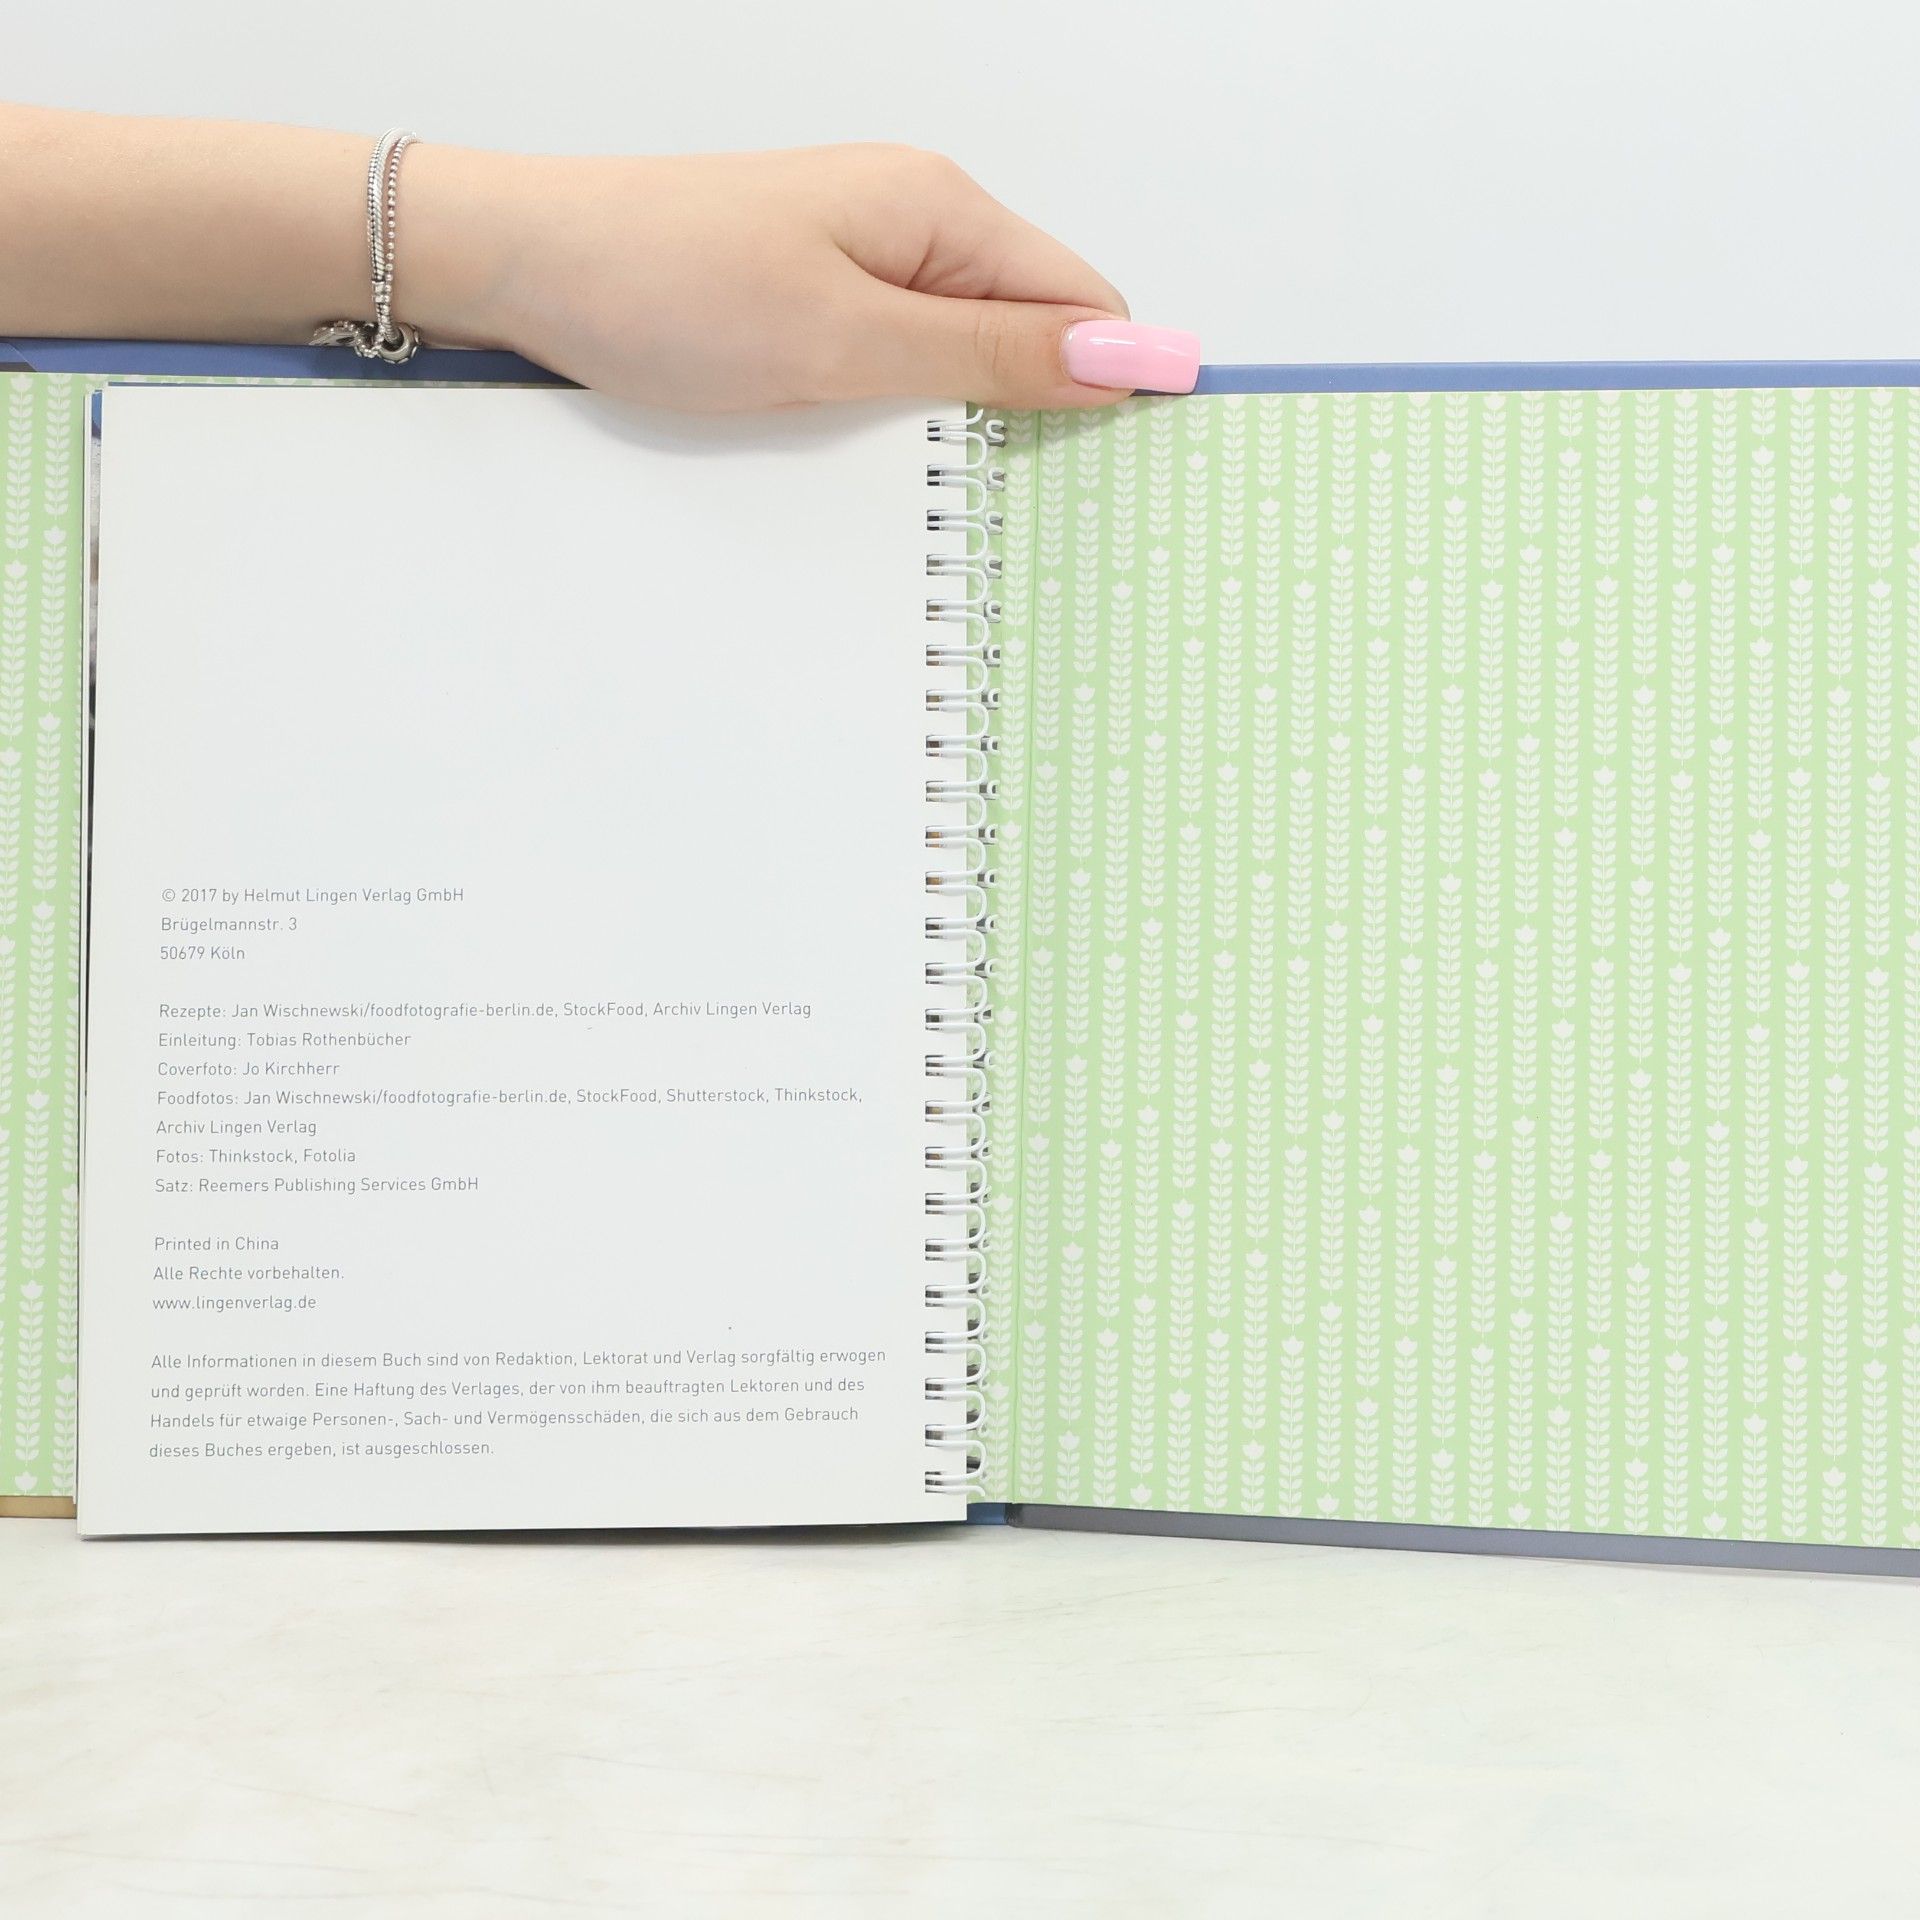 © 2017 by Helmut Lingen Verlag GmbH
Brügelmannstr. 3
50679 Köln
Rezepte: Jan Wischnewski/foodfotografie-berlin.de, StockFood, Archiv Lingen Verlag
Einleitung: Tobias Rothenbücher
Coverfoto: Jo Kirchherr
Foodfotos: Jan Wischnewski/foodfotografie-berlin.de, StockFood, Shutterstock, Thinkstock,
Archiv Lingen Verlag
Fotos: Thinkstock, Fotolia
Satz: Reemers Publishing Services GmbH
Printed in China
Alle Rechte vorbehalten.
www.lingenverlag.de
Alle Informationen in diesem Buch sind von Redaktion, Lektorat und Verlag sorgfältig erwogen
und geprüft worden. Eine Haftung des Verlages, der von ihm beauftragten Lektoren und des
Handels für etwaige Personen-, Sach- und Vermögensschäden, die sich aus dem Gebrauch
dieses Buches ergeben, ist ausgeschlossen.